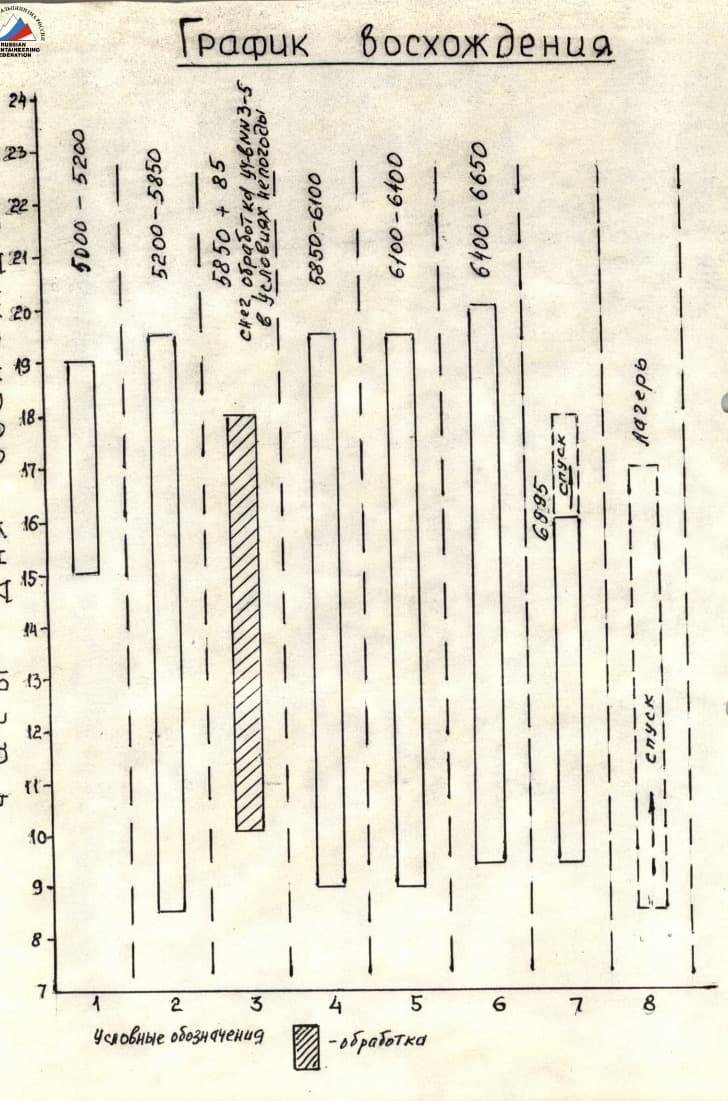 RUSSIAN
График восхождения
24
23
22
21
20
19
18
17
16
15
14
13
12
11
10
9
8
7
5000 - 5200
5200 - 5850
5850 + 85
снег обработка уч-в №№3-5
в условиях непогоды
5850-6100
6100-6400
6400 - 6650
6995
спуск
Лагерь
спуск
1 2 3 4 5 6 7 8
Условные обозначения
- обработка